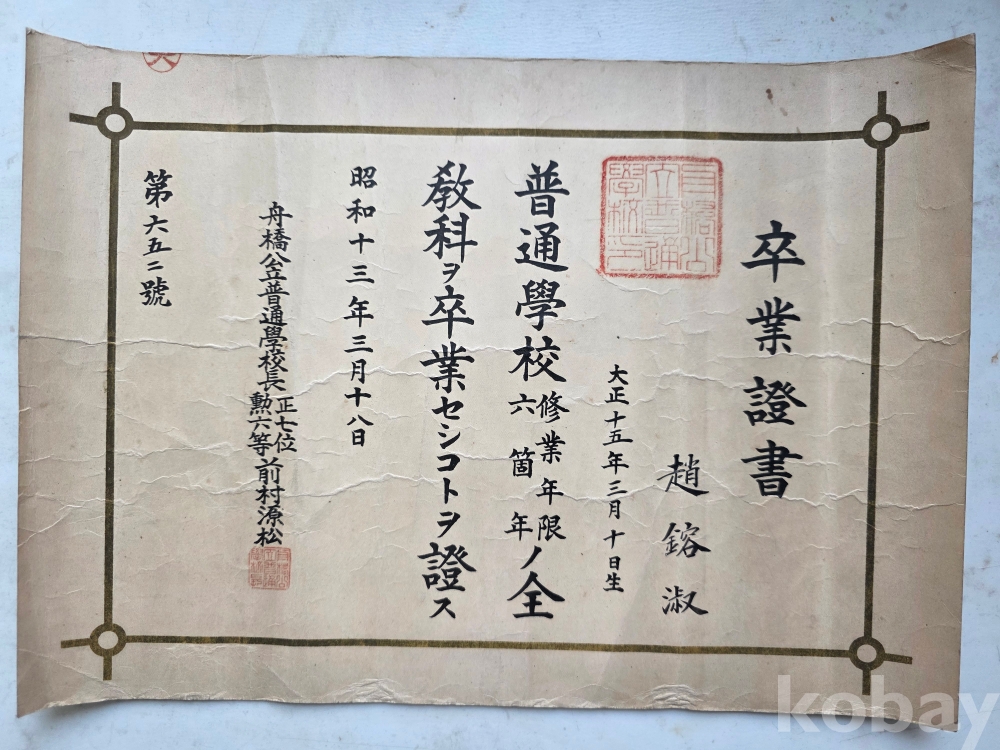 卒業證書
趙鎔淑
大正十五年三月十日生
普通學校修業年限六箇年ノ全
敎科ヲ卒業セシコトヲ證ス
昭和十三年三月十八日
舟橋公立普通學校長正七位勳六等前村源松
第六五二號
kobay